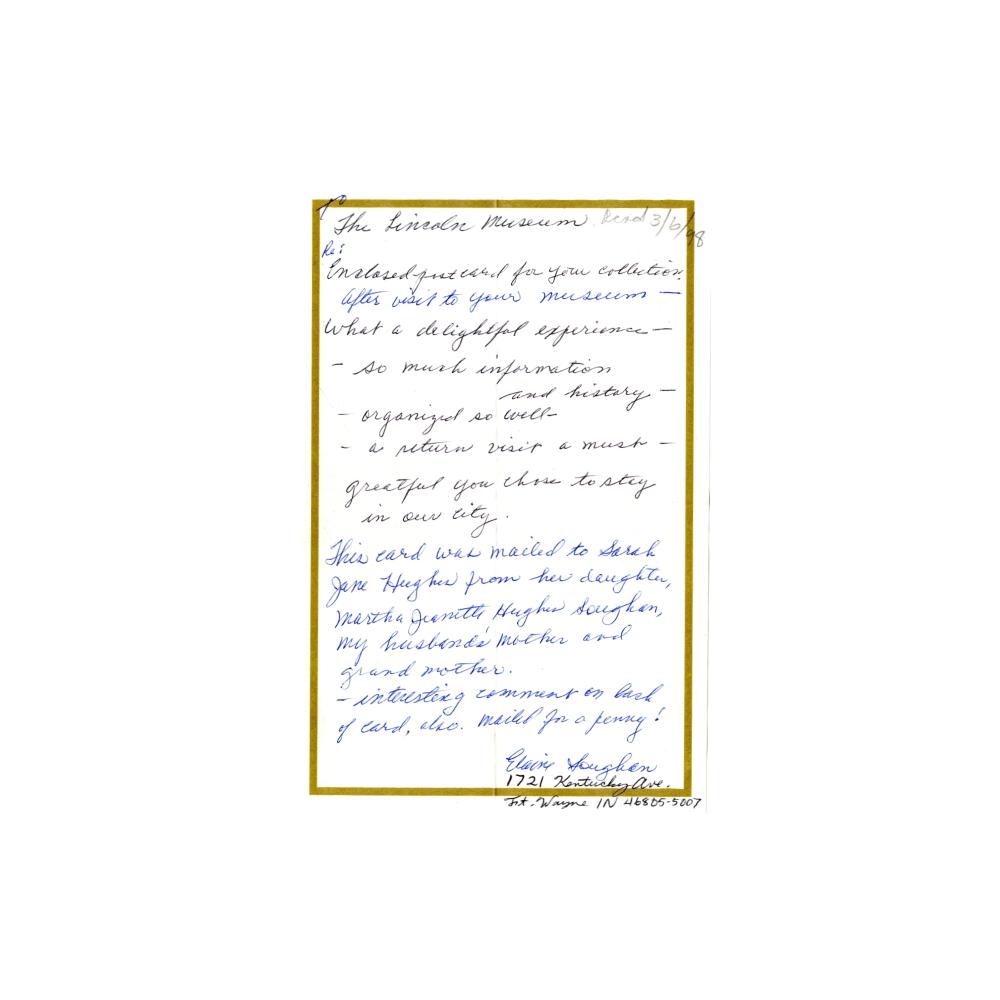 To
The Lincoln Museum Recd 3/6/98
Re:
Enclosed postcard for your collection.
After visit to your museum —
What a delightful experience —
- so much information
and history —
- organized so well -
- a return visit a must —
greatful you chose to stay
in our city.
This card was mailed to Sarah
Jane Hughes from her daughter,
Martha Jeanette Hughes Soughan,
my husband's mother and
grand mother.
- interesting comment on back
of card, also. Mailed for a penny!
Elaine Soughan
1721 Kentucky Ave.
Ft. Wayne IN 46805-5007